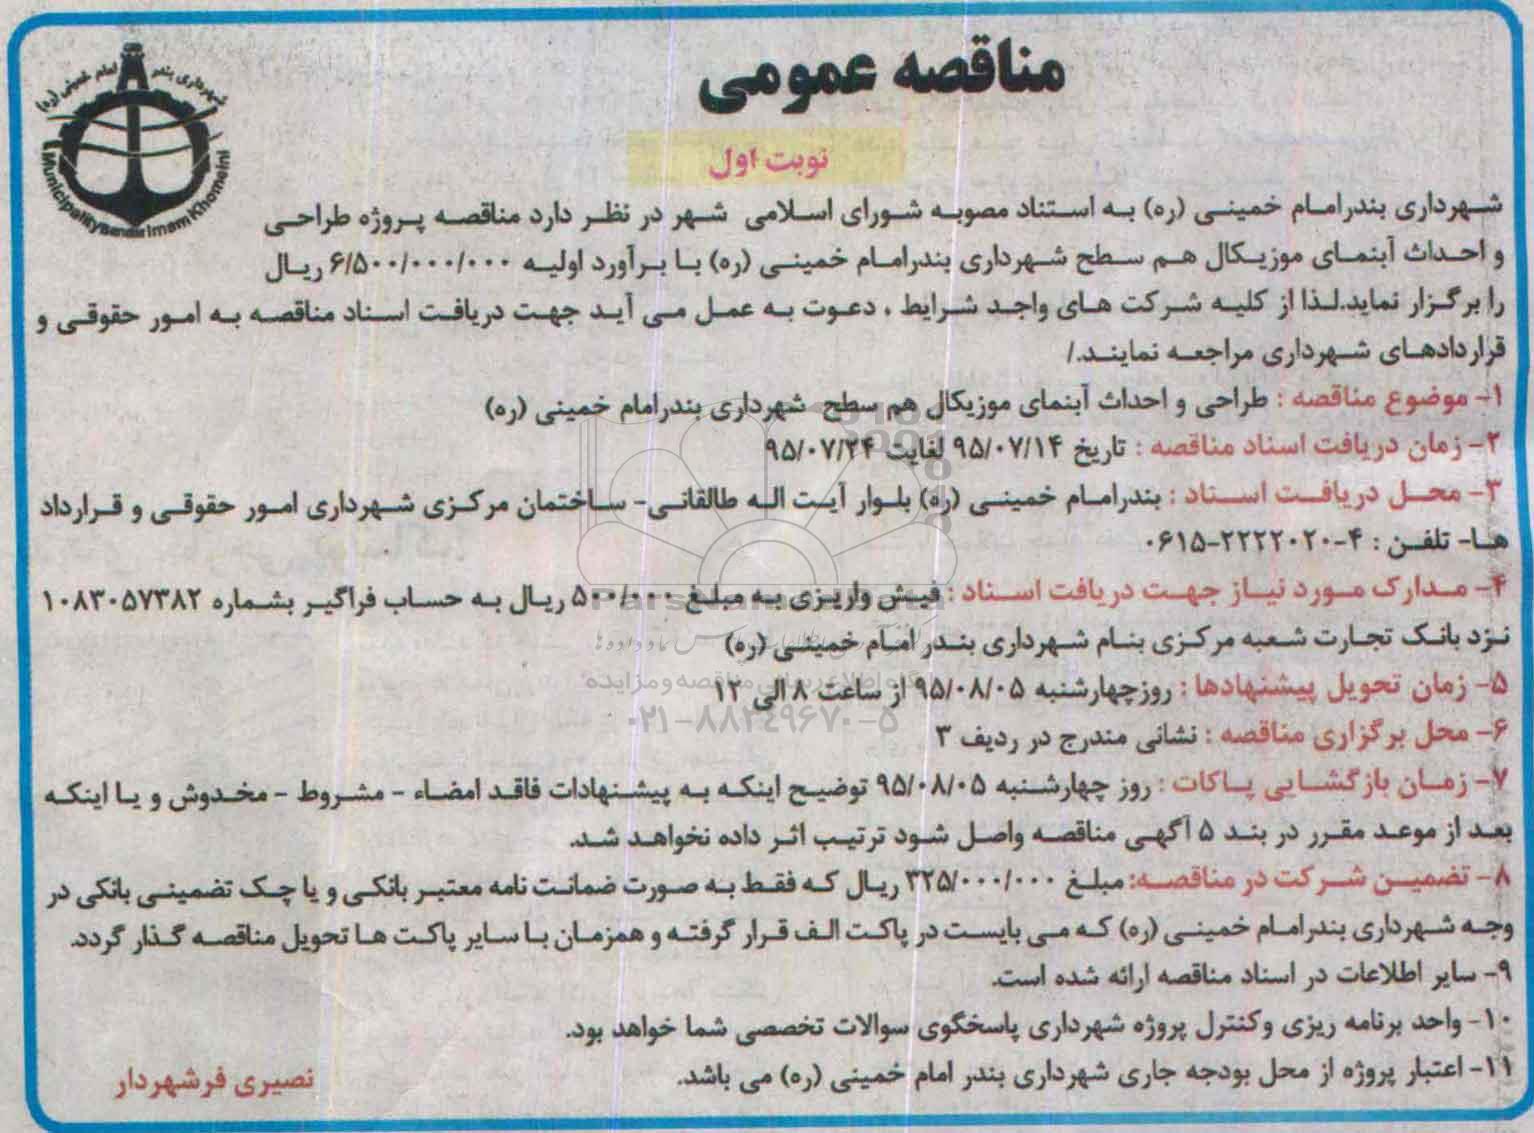 شهرداری بندر امام خمینی (ره)
Municipality Bandar Imam Khomeini
مناقصه عمومی
نوبت اول
شهرداری بندرامام خمینی (ره) به استناد مصوبه شورای اسلامی شهر در نظر دارد مناقصه پروژه طراحی
و احداث آبنمای موزیکال هم سطح شهرداری بندرامام خمینی (ره) با برآورد اولیه ۶/۵۰۰/۰۰۰/۰۰۰ ریال
را برگزار نماید.لذا از کلیه شرکت های واجد شرایط ، دعوت به عمل می آید جهت دریافت اسناد مناقصه به امور حقوقی و
قراردادهای شهرداری مراجعه نمایند./
۱- موضوع مناقصه : طراحی و احداث آبنمای موزیکال هم سطح شهرداری بندرامام خمینی (ره)
۲- زمان دریافت اسناد مناقصه : تاریخ ۹۵/۰۷/۱۴ لغایت ۹۵/۰۷/۲۴
۳- محل دریافت اسناد : بندرامام خمینی (ره) بلوار آیت اله طالقانی- ساختمان مرکزی شهرداری امور حقوقی و قرارداد
ها- تلفن : ۴-۲۲۲۲۰۲۰-۰۶۱۵
۴- مدارک مورد نیاز جهت دریافت اسناد : فیش واریزی به مبلغ ۵۰۰/۰۰۰ ریال به حساب فراگیر بشماره ۱۰۸۳۰۵۷۳۸۲
نزد بانک تجارت شعبه مرکزی بنام شهرداری بندر امام خمینی (ره)
۵- زمان تحویل پیشنهادها : روزچهارشنبه ۹۵/۰۸/۰۵ از ساعت ۸ الی ۱۲
پایگاه اطلاع رسانی مناقصه و مزایده
۰۲۱-۸۸۳۴۹۶۷۰-۵
۶- محل برگزاری مناقصه : نشانی مندرج در ردیف ۳
۷- زمان بازگشایی پاکات : روز چهارشنبه ۹۵/۰۸/۰۵ توضیح اینکه به پیشنهادات فاقد امضاء - مشروط - مخدوش و یا اینکه
بعد از موعد مقرر در بند ۵ آگهی مناقصه واصل شود ترتیب اثر داده نخواهد شد.
۸- تضمین شرکت در مناقصه: مبلغ ۳۲۵/۰۰۰/۰۰۰ ریال که فقط به صورت ضمانت نامه معتبر بانکی و یا چک تضمینی بانکی در
وجه شهرداری بندرامام خمینی (ره) که می بایست در پاکت الف قرار گرفته و همزمان با سایر پاکت ها تحویل مناقصه گذار گردد.
۹- سایر اطلاعات در اسناد مناقصه ارائه شده است.
۱۰- واحد برنامه ریزی وکنترل پروژه شهرداری پاسخگوی سوالات تخصصی شما خواهد بود.
۱۱- اعتبار پروژه از محل بودجه جاری شهرداری بندر امام خمینی (ره) می باشد.
نصیری فرشهردار